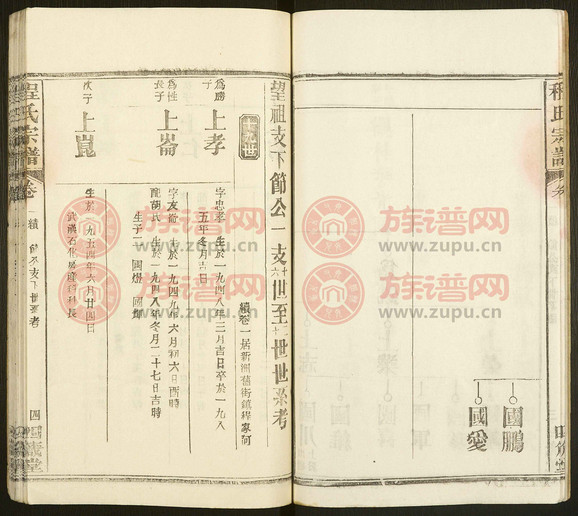 程氏宗譜
卷
國鵬
國愛
望祖支下節公一支十六世至二十世世系考
續卷一居新洲舊街鎮程家河
爲勝子
上孝
字忠孝 生於一九四八年三月吉日卒於一九八
五年冬月吉日
爲性長子
上崙
字友崙 生於一九四九年六月初六日酉時
配胡氏 生於一九四八年冬月二十七日吉時
生子二 國燈 國
次子
上崑
生於一九五四年六月廿四日
武漢石化
科長
程氏宗譜
卷
續
四
族谱网
www.zupu.cn
族谱网
www.zupu.cn
族谱网
www.zupu.cn
族谱网
www.zupu.cn